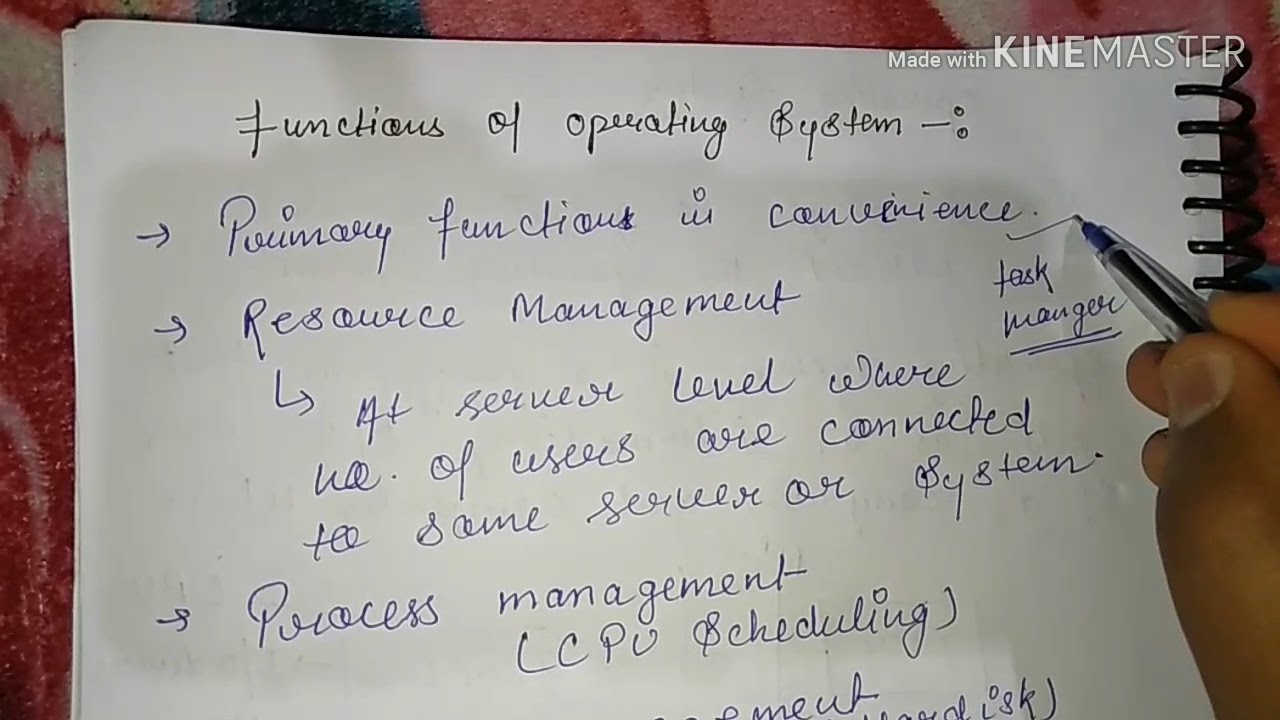 Made with KINEMASTER
Functions of operating System -:
→ Primary functions is convenience.
task
manger
→ Resource Management
↳ At server level where
no. of users are connected
to same server or System.
→ Process management
(CPU Scheduling)